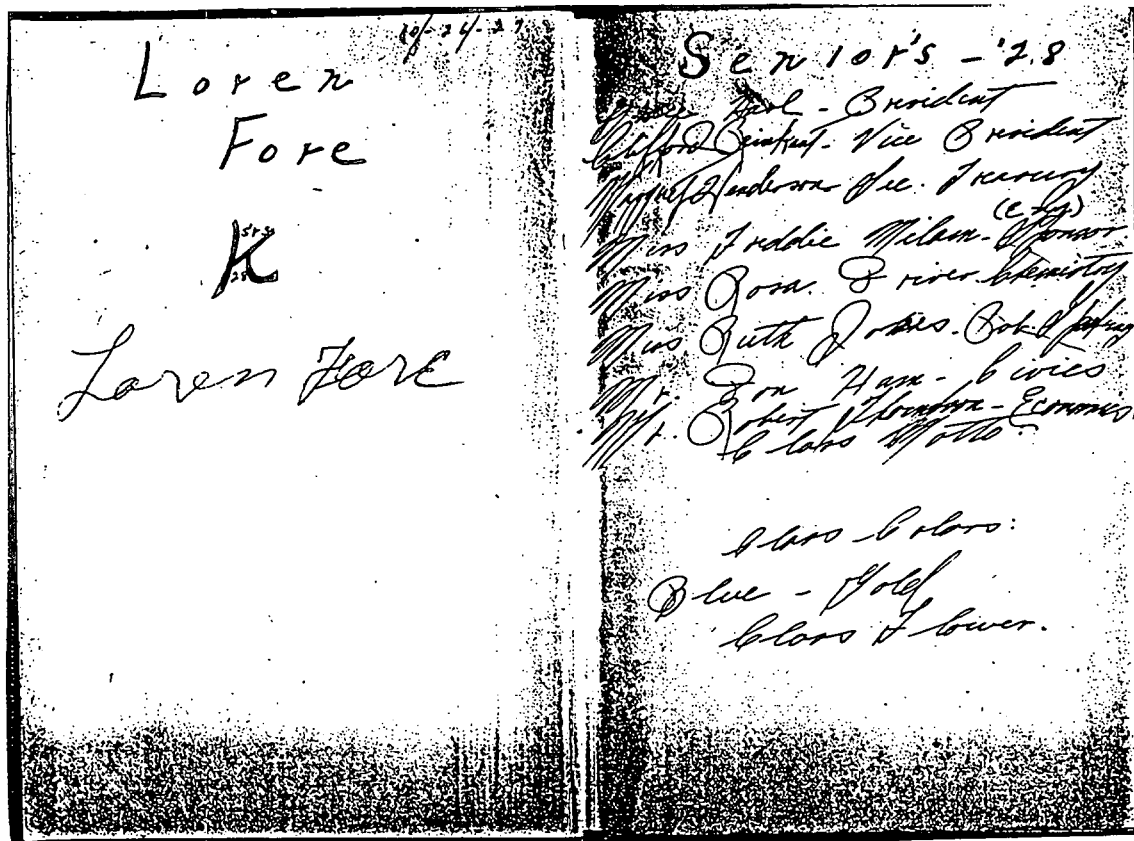 10-24-27
Loren
Fore
K
Loren Fore
Senior's - '28
- President
Clifford - Vice President
Henderson Sec. Treasury
(Eng.)
Miss Freddie Milam - Sponsor
Miss Rosa Driver Chemistry
Miss Ruth
Mr. Don Ham - Civics
Mr. Robert Thornton - Economics
Class Motto:
Class Colors:
Blue - Gold
Class Flower.